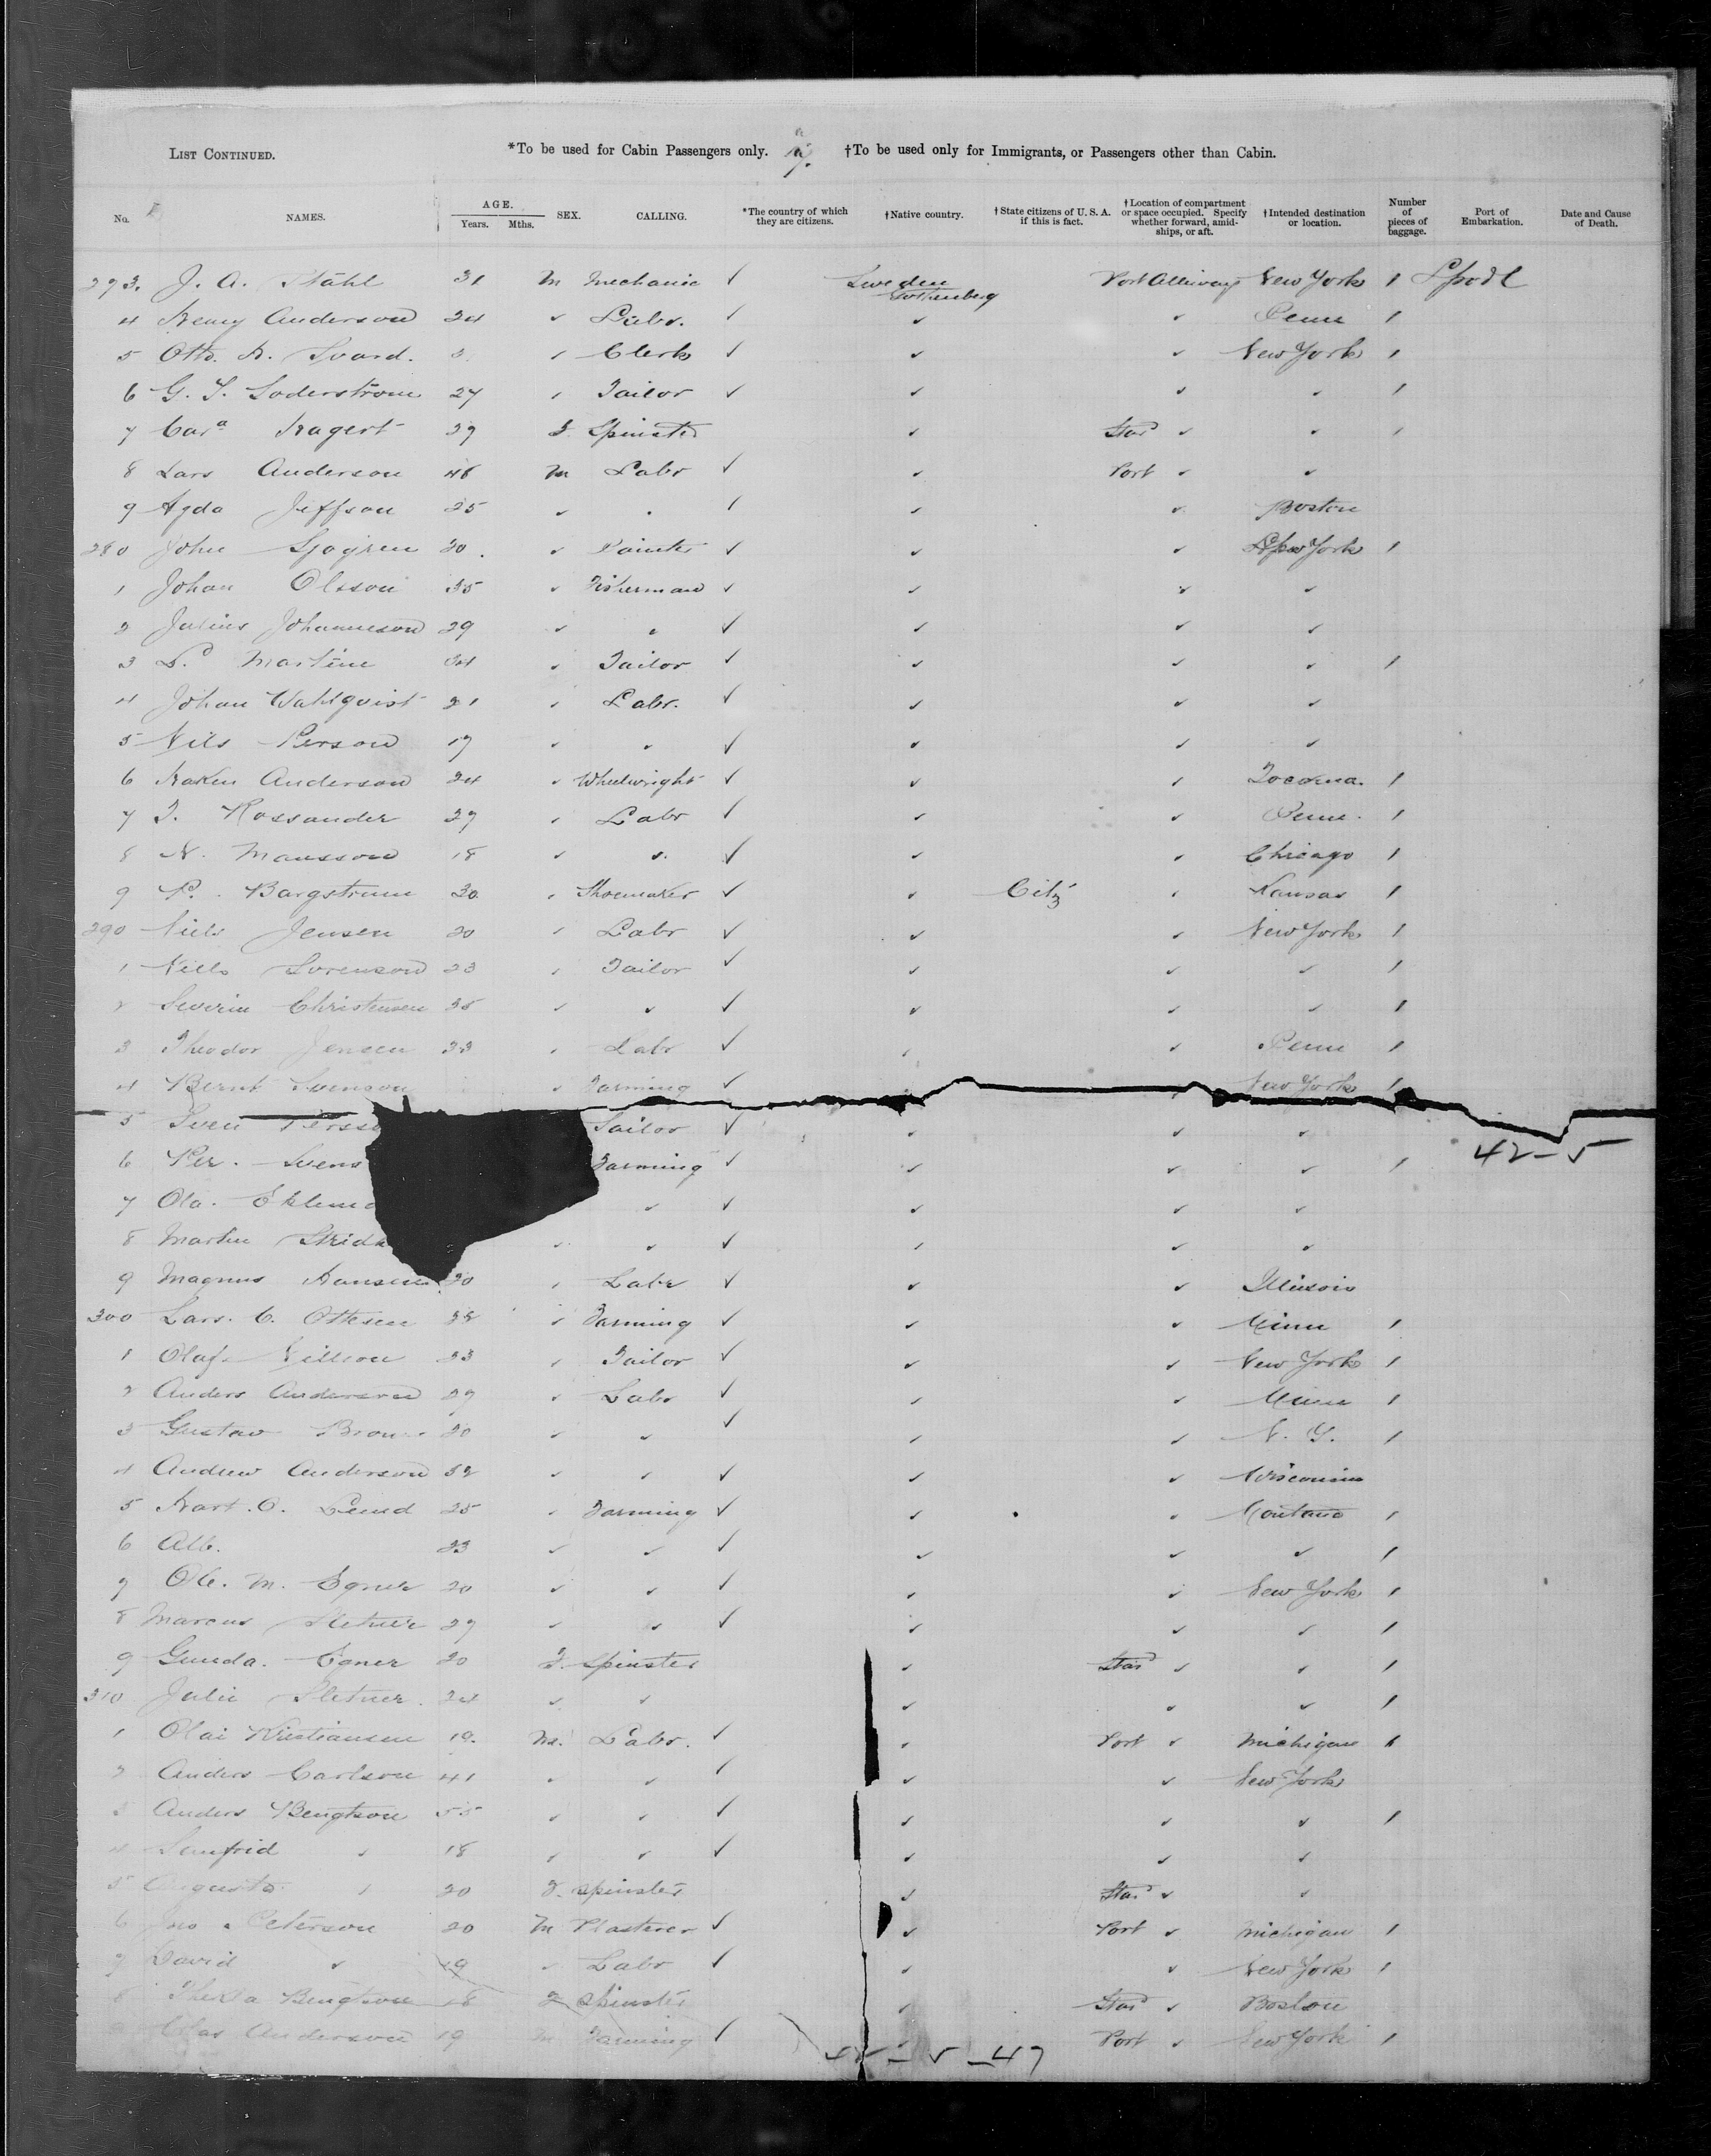 LIST CONTINUED. *To be used for Cabin Passengers only. †To be used only for Immigrants, or Passengers other than Cabin.
No. NAMES. AGE. Years. Mths. SEX. CALLING. *The country of which they are citizens. †Native country. †State citizens of U. S. A. if this is fact. †Location of compartment or space occupied. Specify whether forward, amidships, or aft. †Intended destination or location. Number of pieces of baggage. Port of Embarkation. Date and Cause of Death.
273. J. A. Ståhl 31 M Mechanic ✓ Sweden Gothenberg Port Alleway New York 1 Lpool
4 Henry Anderson 24 ✓ Labr. ✓ ✓ ✓ Penn 1
5 Otto A. Svard. ✓ Clerk ✓ ✓ ✓ New York 1
6 G. T. Soderstrom 27 ✓ Tailor ✓ ✓ ✓ ✓ 1
7 Cara Hagert 29 F. Spinster ✓ Stard ✓ ✓ 1
8 Lars Anderson 48 M Labr ✓ ✓ Port ✓ ✓
9 Agda Jeffson 25 ✓ ✓ ✓ ✓ ✓ Boston
280 John Sjogren 20. ✓ Painter ✓ ✓ ✓ New York 1
1 Johan Olsson 35 ✓ Fisherman ✓ ✓ ✓ ✓
2 Julius Johanneson 29 ✓ ✓ ✓ ✓ ✓ ✓
3 L. Martine 34 ✓ Tailor ✓ ✓ ✓ ✓ 1
4 Johan Wahlqvist 21 ✓ Labr. ✓ ✓ ✓ ✓
5 Nils Person 19 ✓ ✓ ✓ ✓ ✓ ✓
6 Haken Anderson 24 ✓ Wheelwright ✓ ✓ ✓ Tocoma. 1
7 T. Rossander 27 ✓ Labr ✓ ✓ ✓ Penn. 1
8 N. Mansson 18 ✓ ✓ ✓ ✓ ✓ Chicago 1
9 P. Bargstrum 30 ✓ Shoemaker ✓ ✓ Citz ✓ Kansas 1
290 Niels Jensen 20 ✓ Labr ✓ ✓ ✓ New York 1
1 Niels Sorenson 23 ✓ Tailor ✓ ✓ ✓ ✓ 1
2 Severin Christensen 25 ✓ ✓ ✓ ✓ ✓ ✓ 1
3 Theodor Jensen 23 ✓ Labr ✓ ✓ ✓ Penn 1
4 Bernt Svenson ✓ Farming ✓ ✓ ✓ New York 1
5 Sven Perss Sailor ✓ ✓ ✓ ✓
6 Per. Svens Farming ✓ ✓ ✓ ✓ 1 42-5
7 Ola. Eklund ✓ ✓ ✓ ✓ ✓
8 Martin Strid ✓ ✓ ✓ ✓ ✓ ✓
9 Magnus Hansen 20 ✓ Labr ✓ ✓ ✓ Illinois
300 Lars. C. Ottesen 32 ✓ Farming ✓ ✓ ✓ Minn 1
1 Olaf Nillson 23 ✓ Tailor ✓ ✓ ✓ New York 1
2 Anders Anderson 29 ✓ Labr ✓ ✓ ✓ Minn 1
3 Gustav Brow 20 ✓ ✓ ✓ ✓ ✓ N. Y. 1
4 Andrew Anderson 32 ✓ ✓ ✓ ✓ ✓ Wisconsin
5 Hart. O. Lund 25 ✓ Farming ✓ ✓ ✓ Montana 1
6 Alb. 23 ✓ ✓ ✓ ✓ ✓ ✓ 1
7 Ole. M. Egner 20 ✓ ✓ ✓ ✓ ✓ New York 1
8 Marcus Sletner 29 ✓ ✓ ✓ ✓ ✓ ✓ 1
9 Gunda. Egner 20 F. Spinster ✓ Stard ✓ ✓ 1
310 Julie Sletner. 24 ✓ ✓ ✓ ✓ ✓ 1
1 Olai Kristiansen 19. M. Labr. ✓ ✓ Port ✓ Michigan 1
2 Anders Carlson 41 ✓ ✓ ✓ ✓ ✓ New York
3 Anders Bengtson 55 ✓ ✓ ✓ ✓ ✓ ✓ 1
4 Senfrid ✓ 18 ✓ ✓ ✓ ✓ ✓ ✓
5 Augusta ✓ 20 F. Spinster ✓ Stard ✓ ✓
6 Jno Peterson 20 M Plasterer ✓ ✓ Port ✓ Michigan 1
7 David ✓ 19 ✓ Labr ✓ ✓ ✓ New York 1
8 Thekla Bengtson 18 F Spinster ✓ Stard ✓ Boston
9 Anderson 19 M Farming ✓ ✓ Port ✓ New York 1